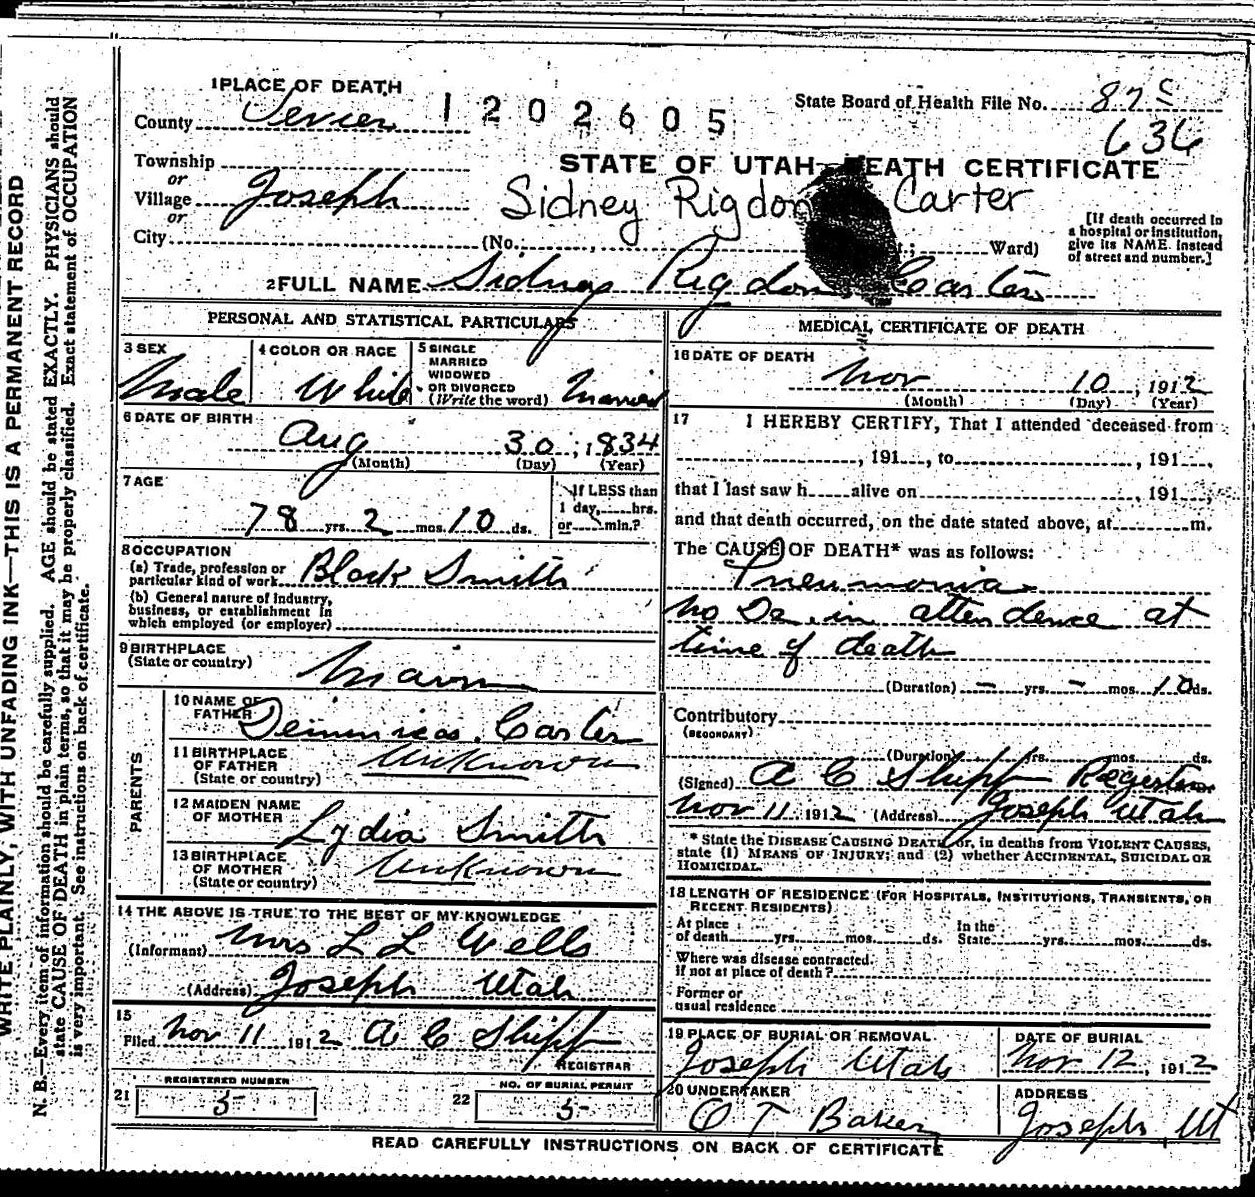 1 PLACE OF DEATH
County Sevier
1202605
State Board of Health File No. 87 S
636
Township
or
Village Joseph
or
City (No. , ; Ward)
STATE OF UTAH DEATH CERTIFICATE
Sidney Rigdon Carter
[If death occurred in
a hospital or institution,
give its NAME instead
of street and number.]
2 FULL NAME Sidney Rigdon Carter
PERSONAL AND STATISTICAL PARTICULARS
3 SEX
Male
4 COLOR OR RACE
White
5 SINGLE
MARRIED
WIDOWED
OR DIVORCED
(Write the word) Married
6 DATE OF BIRTH
Aug 30, 1834
(Month) (Day) (Year)
7 AGE
78 yrs. 2 mos. 10 ds.
If LESS than
1 day, hrs.
or min.?
8 OCCUPATION
(a) Trade, profession or
particular kind of work Black Smith
(b) General nature of industry,
business, or establishment in
which employed (or employer)
9 BIRTHPLACE
(State or country)
PARENTS
10 NAME OF
FATHER Carter
11 BIRTHPLACE
OF FATHER
(State or country) Unknown
12 MAIDEN NAME
OF MOTHER
Lydia Smith
13 BIRTHPLACE
OF MOTHER
(State or country) Unknown
14 THE ABOVE IS TRUE TO THE BEST OF MY KNOWLEDGE
(Informant) Mrs L L Wells
(Address) Joseph Utah
15
Filed Nov 11 1912 A C Shipp
REGISTRAR
REGISTERED NUMBER
21 5
NO. OF BURIAL PERMIT
22 5
MEDICAL CERTIFICATE OF DEATH
16 DATE OF DEATH
Nov 10, 1912
(Month) (Day) (Year)
17 I HEREBY CERTIFY, That I attended deceased from
, 191 , to , 191 ,
that I last saw h alive on , 191 ,
and that death occurred, on the date stated above, at m.
The CAUSE OF DEATH* was as follows:
Pneumonia
No Dr. in attendence at
time of death
(Duration) - yrs. - mos. 10 ds.
Contributory
(SECONDARY)
(Duration) yrs. mos. ds.
(Signed) A C Shipp
Nov 11 1912 (Address) Joseph Utah
* State the DISEASE CAUSING DEATH, or, in deaths from VIOLENT CAUSES,
state (1) MEANS OF INJURY; and (2) whether ACCIDENTAL, SUICIDAL OR
HOMICIDAL.
18 LENGTH OF RESIDENCE (FOR HOSPITALS, INSTITUTIONS, TRANSIENTS, OR
RECENT RESIDENTS)
At place
of death yrs. mos. ds.
In the
State yrs. mos. ds.
Where was disease contracted,
if not at place of death?
Former or
usual residence
19 PLACE OF BURIAL OR REMOVAL
Joseph Utah
DATE OF BURIAL
Nov 12, 1912
20 UNDERTAKER
O T Baker
ADDRESS
Joseph, Ut
READ CAREFULLY INSTRUCTIONS ON BACK OF CERTIFICATE
WRITE PLAINLY, WITH UNFADING INK—THIS IS A PERMANENT RECORD
N. B.—Every item of information should be carefully supplied. AGE should be stated EXACTLY. PHYSICIANS should
state CAUSE OF DEATH in plain terms, so that it may be properly classified. Exact statement of OCCUPATION
is very important. See instructions on back of certificate.